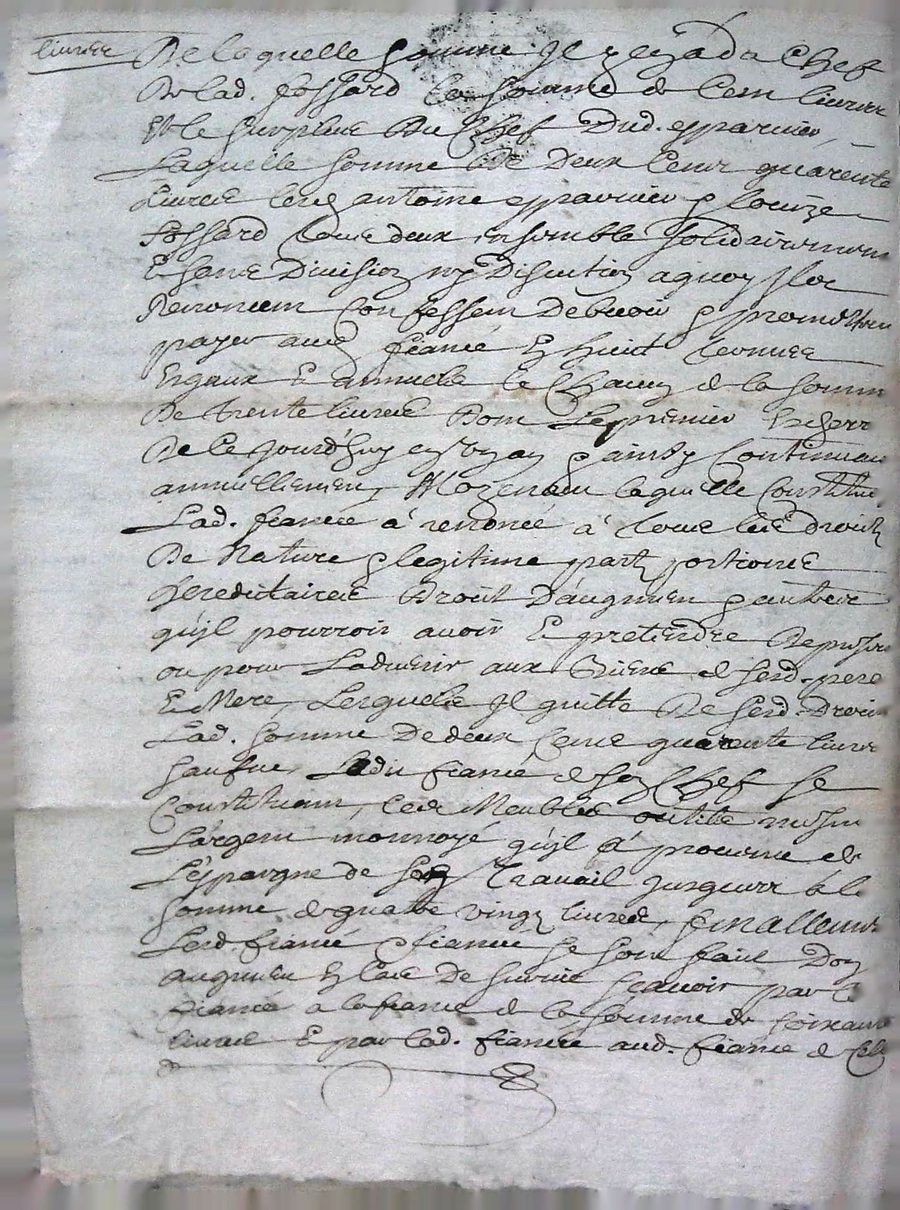 livres De laquelle somme Il y en a du Chef
De lad. fossard la somme de Cent livres
Et le surplus Du Chef Dud. esparvier,
Laquelle somme de Deux Cents quarente
Livres lesd antoine esparvier & louize
fossard tous deux ensemble solidairement
Et sans Division ny Discution a quoy Ils
Renoncent Confessent Debvoir & promettent
payer aud fiancé En huict termes
Esgaux Et annuels le Chacun de la somme
De trente livres Dont Le premier Escherr
De Ce jourdhuy en & ainsy Continuant
annuellement, Moyenant laquelle Constitution
Lad. fiancée à renoncé à tous ses droicts
De Nature & legitime part portions
hereditaires Droit D'augment & autres
qu'jl pourroit avoir Et pretendre De present
ou pour Ladvenir aux Biens de sesd. pere
Et Mere, Lesquels Il quitte De sesd. Droits
Lad. somme De deux Cents quarente livres
sauf Ledit fiancé de son Chef se
Constituant, Ces Meubles outils
L'argent monnoyé qu'jl à provenu de
L'espargne de son Travail Jusques à la
somme de quatre vingt livres,
Lesd fiancé & fiancée se sont faict Don
augment En Cas De survie scavoir par le
fiancé a la fiancée de la somme de soixante
livres Et par lad. fiancée aud. fiancé de Celle